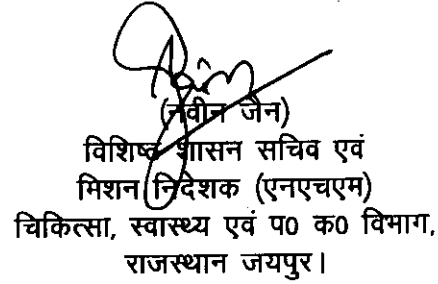 (नवीन जैन)
विशिष्ठ शासन सचिव एवं
मिशन निदेशक (एनएचएम)
चिकित्सा, स्वास्थ्य एवं प0 क0 विभाग,
राजस्थान जयपुर।